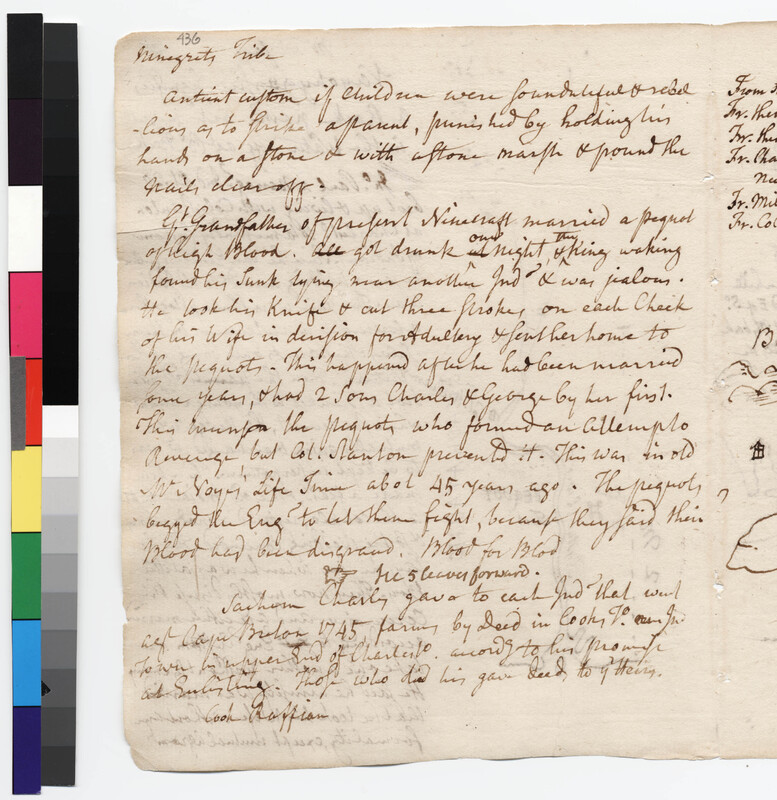 436
Ninegrets Tribe
Antient custom if Children were so undutiful & rebel
-lious as to strike a parent, punished by holding his
hands on a stone & with a stone marsh & pound the
Nails clear off.
Gt. Grandfather of present Ninecraft married a pequot
of high Blood. All got drunk one night, & the King waking
found his Sunk lying near another Indn & was jealous.
He took his Knife & cut three strokes on each Cheek
of his Wife in derision for Adultery & sent her home to
the pequots. This happened after he had been married
some years, & had 2 Sons Charles & George by her first.
This the pequots who formed an Attempt to
Revenge, but Col. Stanton prevented it. This was in old
Mr Noyes's Life Time abot 45 years ago. The pequots
begged the Engs to let them fight, because they said their
Blood had been disgraced. Blood for Blod
See 5 leaves forward.
Sachem Charles gave to each Indn that went
agt Cape Breton 1745, farms by Deed in Cooks To. an Ind
Town in upper End of Charlesto. accordg to his promise
at Enlisting. Those who did his gave Deeds to yr Heirs.
Cook Ruffian
From
Fr. the
Fr. the
Fr. Cha
Fr. Mil
Fr. Col
B